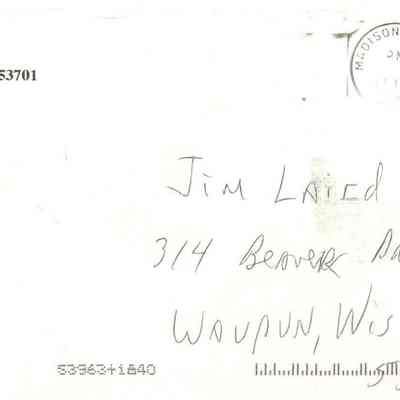 53701
MADISON
PM
Jim LAIRD
314 BEAVER
WAUPUN, WIS
53963+1840